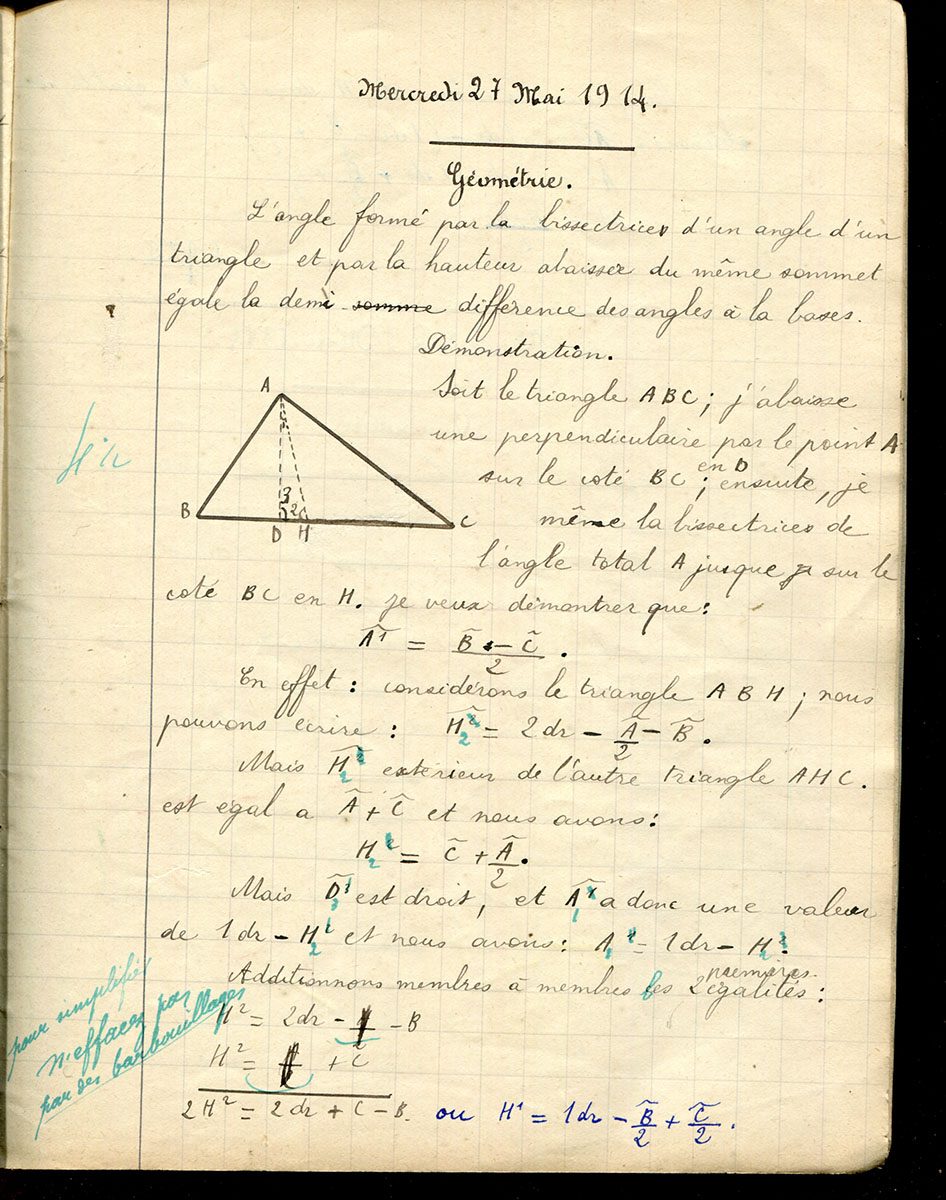 Mercredi 27 Mai 1914.
Géométrie.
L'angle formé par la bissectrices d'un angle d'un
triangle et par la hauteur abaisser du même sommet
égale la demi somme différence des angles à la bases.
Démonstration.
Soit le triangle ABC; j'abaisse
une perpendiculaire par le point A
sur le coté BC en D; ensuite, je
même la bissectrices de
l'angle total A jusque sur le
coté BC en H. je veux démontrer que:
A
B
3
2
C
D H
A¹ = (B - C)/2.
En effet: considérons le triangle ABH; nous
pouvons ecrire: H₂ = 2dr - A/2 - B.
Mais H₂ extérieur de l'autre triangle AHC.
est égal a A + C et nous avons:
H₂ = C + A/2.
Mais D₃ est droit, et A₁ a donc une valeur
de 1dr - H₂ et nous avons: A₁ = 1dr - H₂.
Additionnons membres à membres les 2 premières égalités:
H² = 2dr - - B
H² = + C
2H² = 2dr + C - B. ou H¹ = 1dr - B/2 + C/2.
pour simplifier
n'effacez pas
par des barbouillages